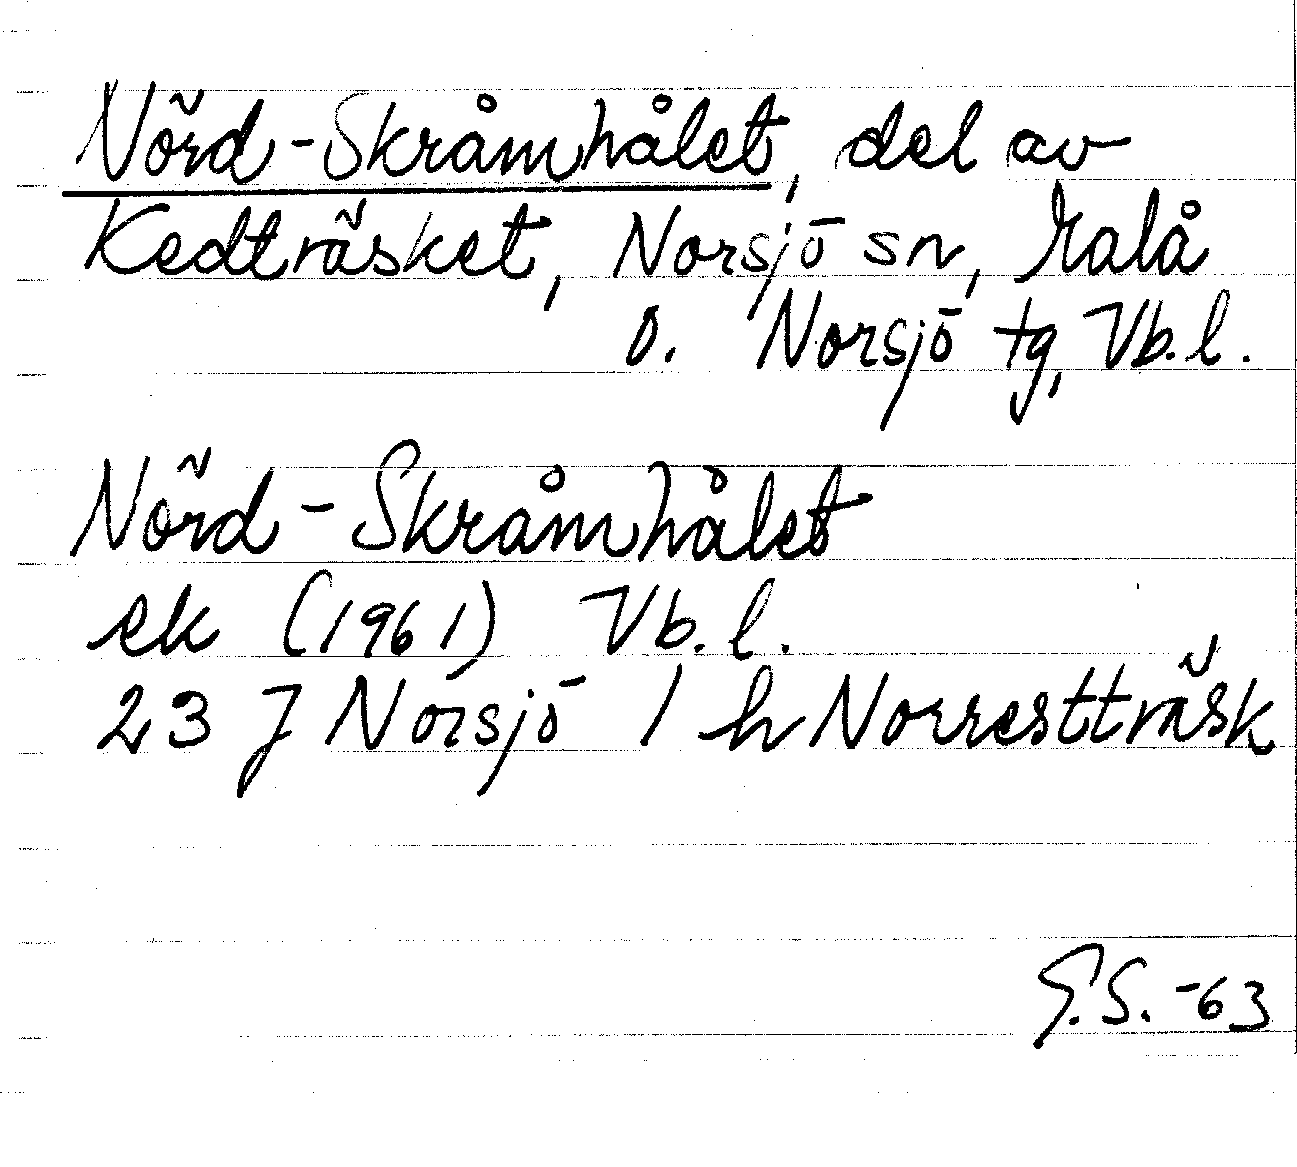 Nörd-Skråmhålet, del av
Kedträsket, Norsjö sn, Malå
o. Norsjö tg, Vb.l.
Nörd-Skråmhålet
ek (1961) Vb.l.
23 J Norsjö 1 h Norresttträsk
G.S. -63